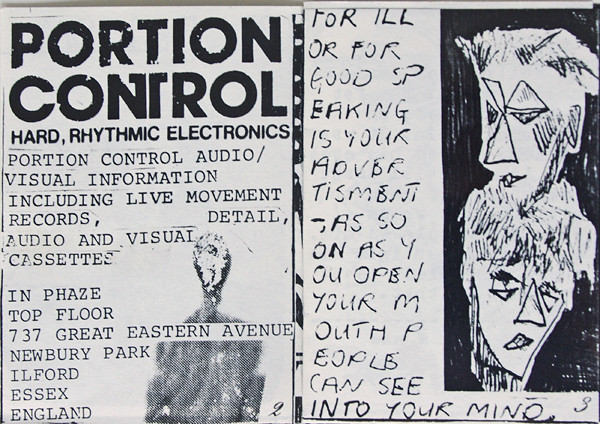 PORTION
CONTROL
HARD, RHYTHMIC ELECTRONICS
PORTION CONTROL AUDIO/
VISUAL INFORMATION
INCLUDING LIVE MOVEMENT
RECORDS, DETAIL,
AUDIO AND VISUAL
CASSETTES
IN PHAZE
TOP FLOOR
737 GREAT EASTERN AVENUE
NEWBURY PARK
ILFORD
ESSEX
ENGLAND
2
FOR ILL
OR FOR
GOOD SP
EAKING
IS YOUR
ADVER
TISMENT
-AS SO
ON AS Y
OU OPEN
YOUR M
OUTH P
EOPLE
CAN SEE
INTO YOUR MIND.
3